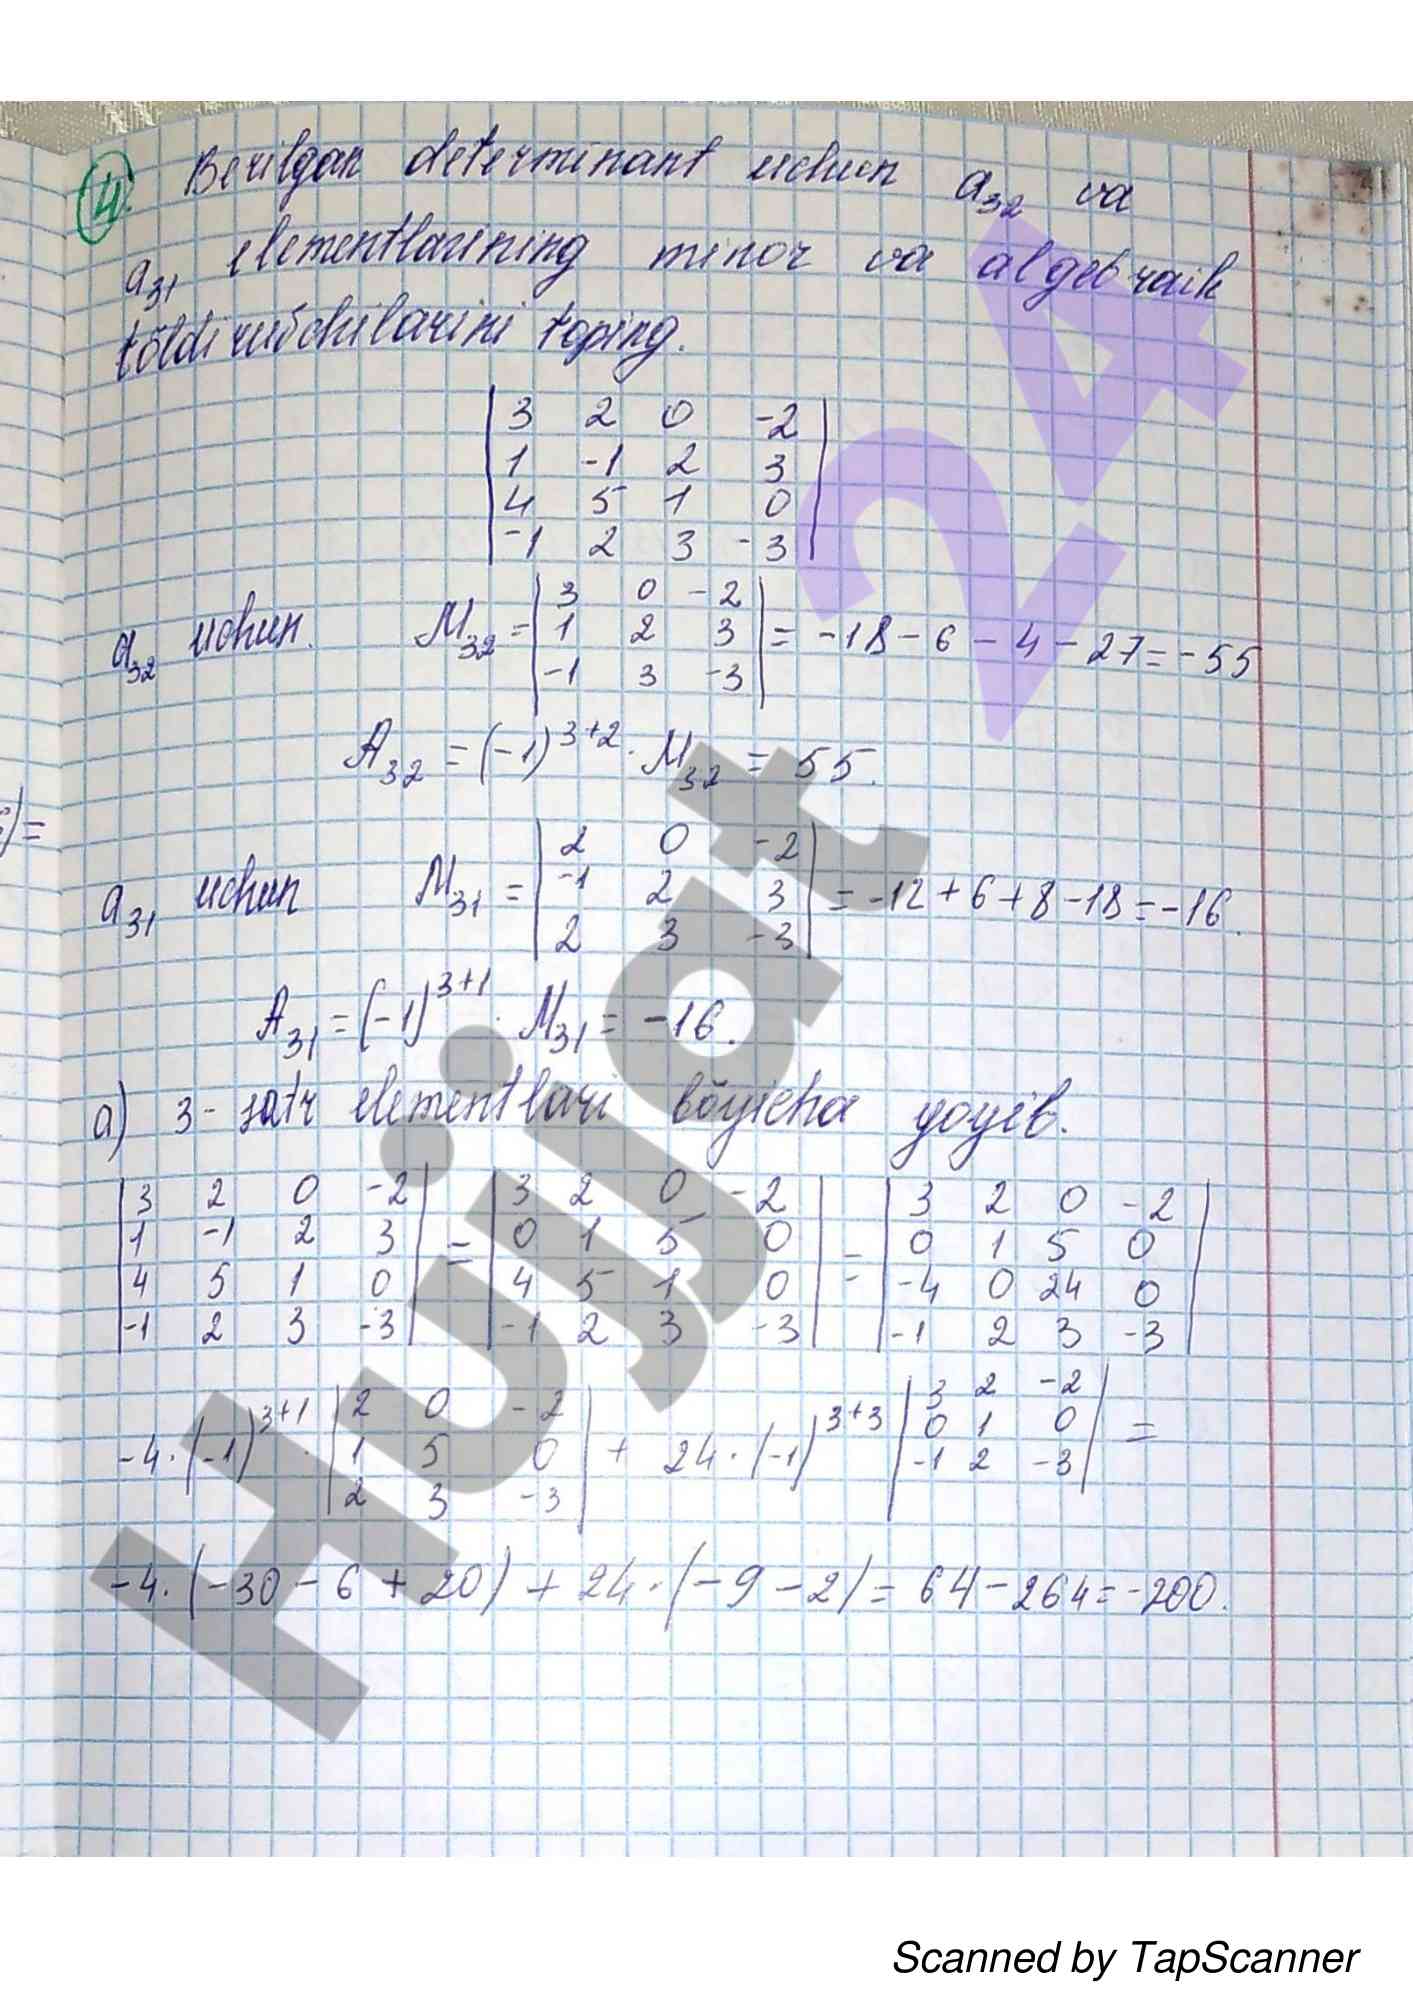 4. Berilgan determinant uchun a₃₂ va
a₃₁ elementlarining minor va algebraik
tŏldiruvchilarini toping.
| 3 2 0 -2 |
| 1 -1 2 3 |
| 4 5 1 0 |
| -1 2 3 -3 |
a₃₂ uchun. M₃₂ = | 3 0 -2 | 1 2 3 | -1 3 -3 | = -18 - 6 - 4 - 27 = -55
A₃₂ = (-1)³⁺² · M₃₂ = 55.
5)=
a₃₁ uchun M₃₁ = | 2 0 -2 | -1 2 3 | 2 3 -3 | = -12 + 6 + 8 - 18 = -16.
A₃₁ = (-1)³⁺¹ · M₃₁ = -16.
a) 3-satr elementlari bŏyicha yoyib.
| 3 2 0 -2 | 1 -1 2 3 | 4 5 1 0 | -1 2 3 -3 | = | 3 2 0 -2 | 0 1 5 0 | 4 5 1 0 | -1 2 3 -3 | = | 3 2 0 -2 | 0 1 5 0 | -4 0 24 0 | -1 2 3 -3 |
-4 · (-1)³⁺¹ · | 2 0 -2 | 1 5 0 | 2 3 -3 | + 24 · (-1)³⁺³ | 3 2 -2 | 0 1 0 | -1 2 -3 | =
-4 · (-30 - 6 + 20) + 24 · (-9 - 2) = 64 - 264 = -200.
Hujjat 24
Scanned by TapScanner